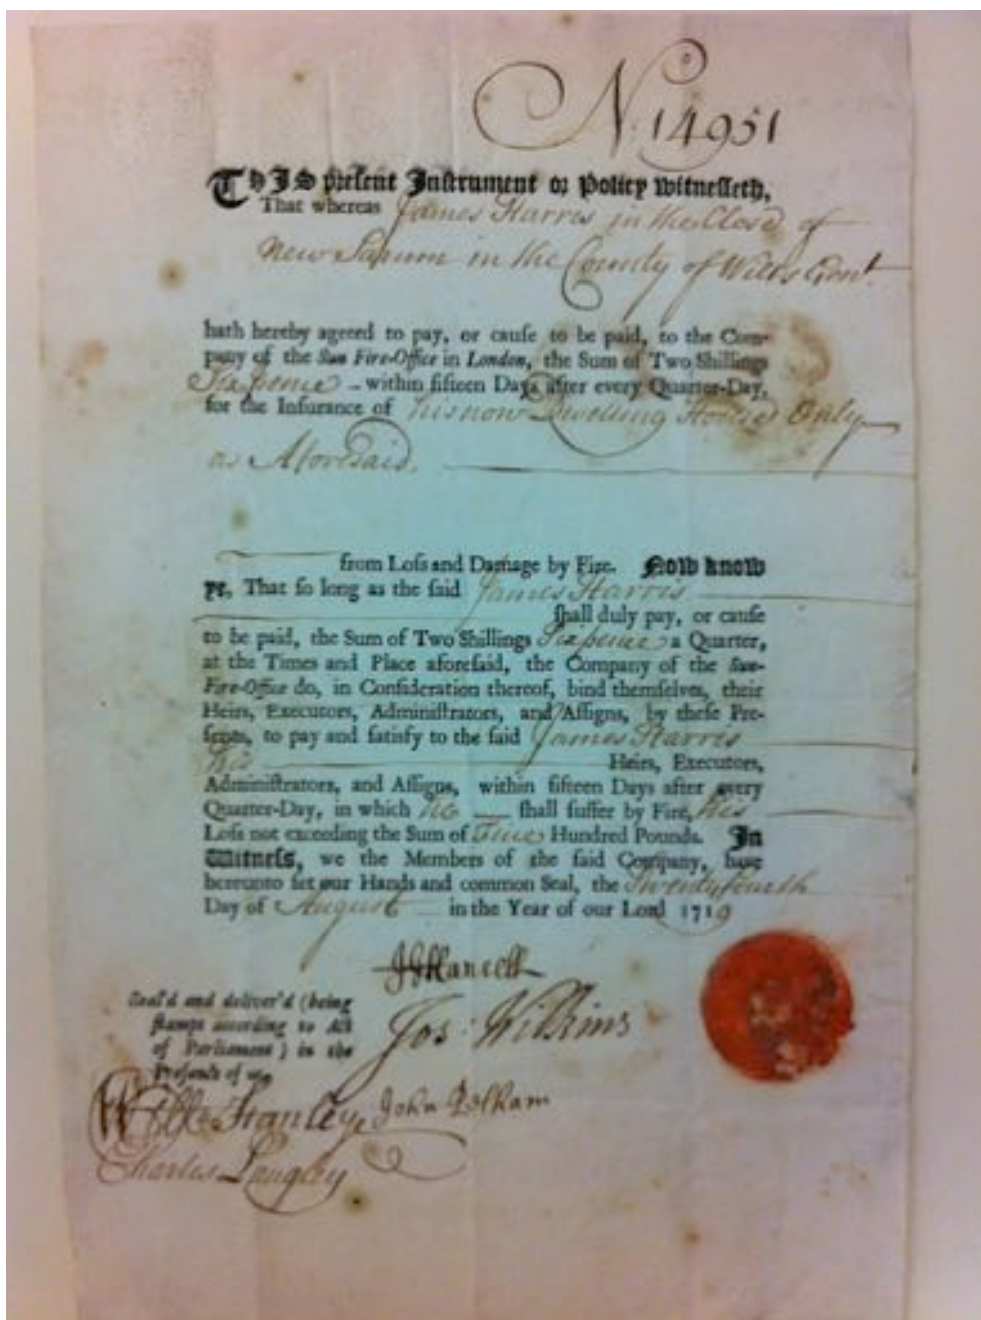 N. 14951
THIS present Instrument or Policy witnesseth,
That whereas James Harris in the Close of
New Sarum in the County of Wilts Gent.
hath hereby agreed to pay, or cause to be paid, to the Com-
pany of the Sun Fire-Office in London, the Sum of Two Shillings
Sixpence within fifteen Days after every Quarter-Day,
for the Insurance of his now Dwelling House Only
as Aforesaid.
from Loss and Damage by Fire. Now know
ye, That so long as the said James Harris
shall duly pay, or cause
to be paid, the Sum of Two Shillings Sixpence a Quarter,
at the Times and Place aforesaid, the Company of the Sun-
Fire-Office do, in Consideration thereof, bind themselves, their
Heirs, Executors, Administrators, and Assigns, by these Pre-
sents, to pay and satisfy to the said James Harris
his Heirs, Executors,
Administrators, and Assigns, within fifteen Days after every
Quarter-Day, in which he shall suffer by Fire, his
Loss not exceeding the Sum of Five Hundred Pounds. In
Witness, we the Members of the said Company, have
hereunto set our Hands and common Seal, the Twenty fourth
Day of August in the Year of our Lord 1719
Jos: Wilkins
Seal'd and deliver'd (being
stampt according to Act
of Parliament) in the
Presents of us
Stanley John Pelham
Charles Langley